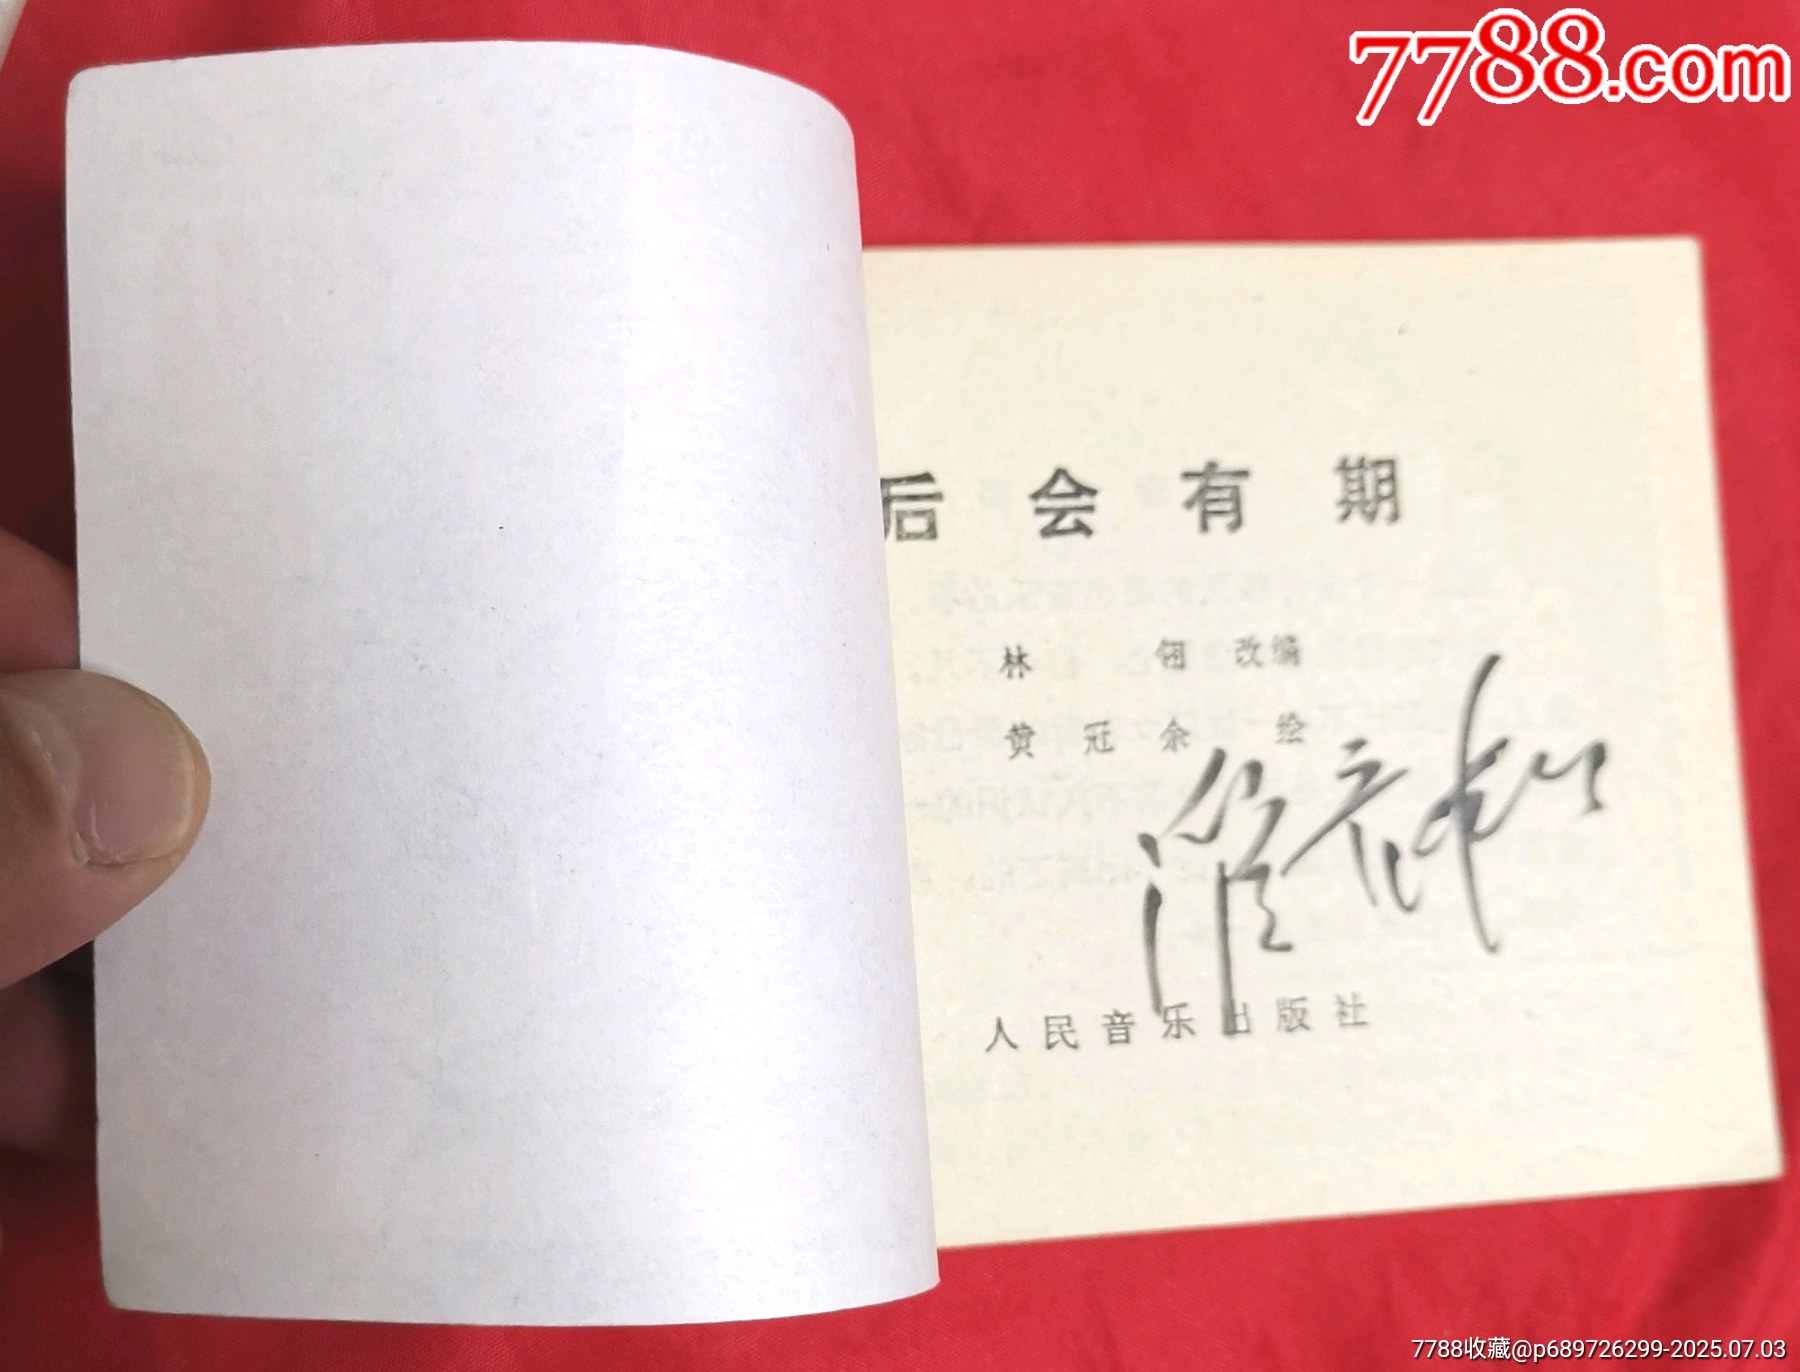 7788.com
后会有期
林 翎 改编
黄冠余 绘
人民音乐出版社
7788收藏@p689726299-2025.07.03